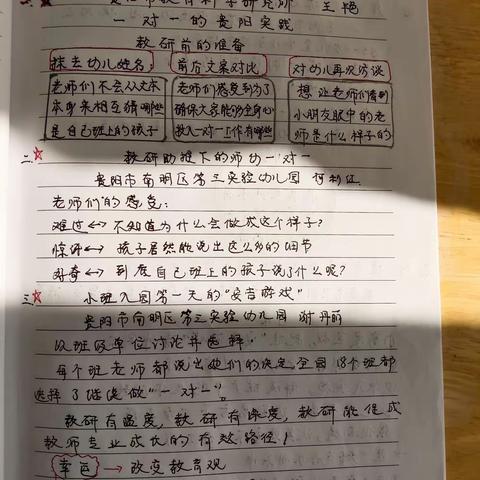 贵阳市教育科学研究所 王艳
一对一的贵阳实践
教研前的准备
抹去幼儿姓名 前后文案对比 对幼儿再次访谈
老师们不会从文本 老师们感受到为了 想让老师们看到
本身来相互猜哪些 确保大家能够全身心 小朋友眼中的老
是自己班上的孩子 投入一对一工作有哪些 师是什么样子的
二、教研助推下的师幼一对一
贵阳市南明区第三实验幼儿园
老师们的感受:
难过↔不知道为什么会做成这个样子?
惊讶↔孩子居然能说出这么多的细节
好奇↔到底自己班上的孩子说了什么呢?
三、小班入园第一天的“安吉游戏”
贵阳市南明区第三实验幼儿园 谢丹丽
以班级单位讨论并选择.
每个班老师都说出她们的决定,全园18个班都
选择了继续做“一对一”。
教研有温度,教研有深度,教研能促成
教师专业成长的有效路径!
幸运→改变教育观